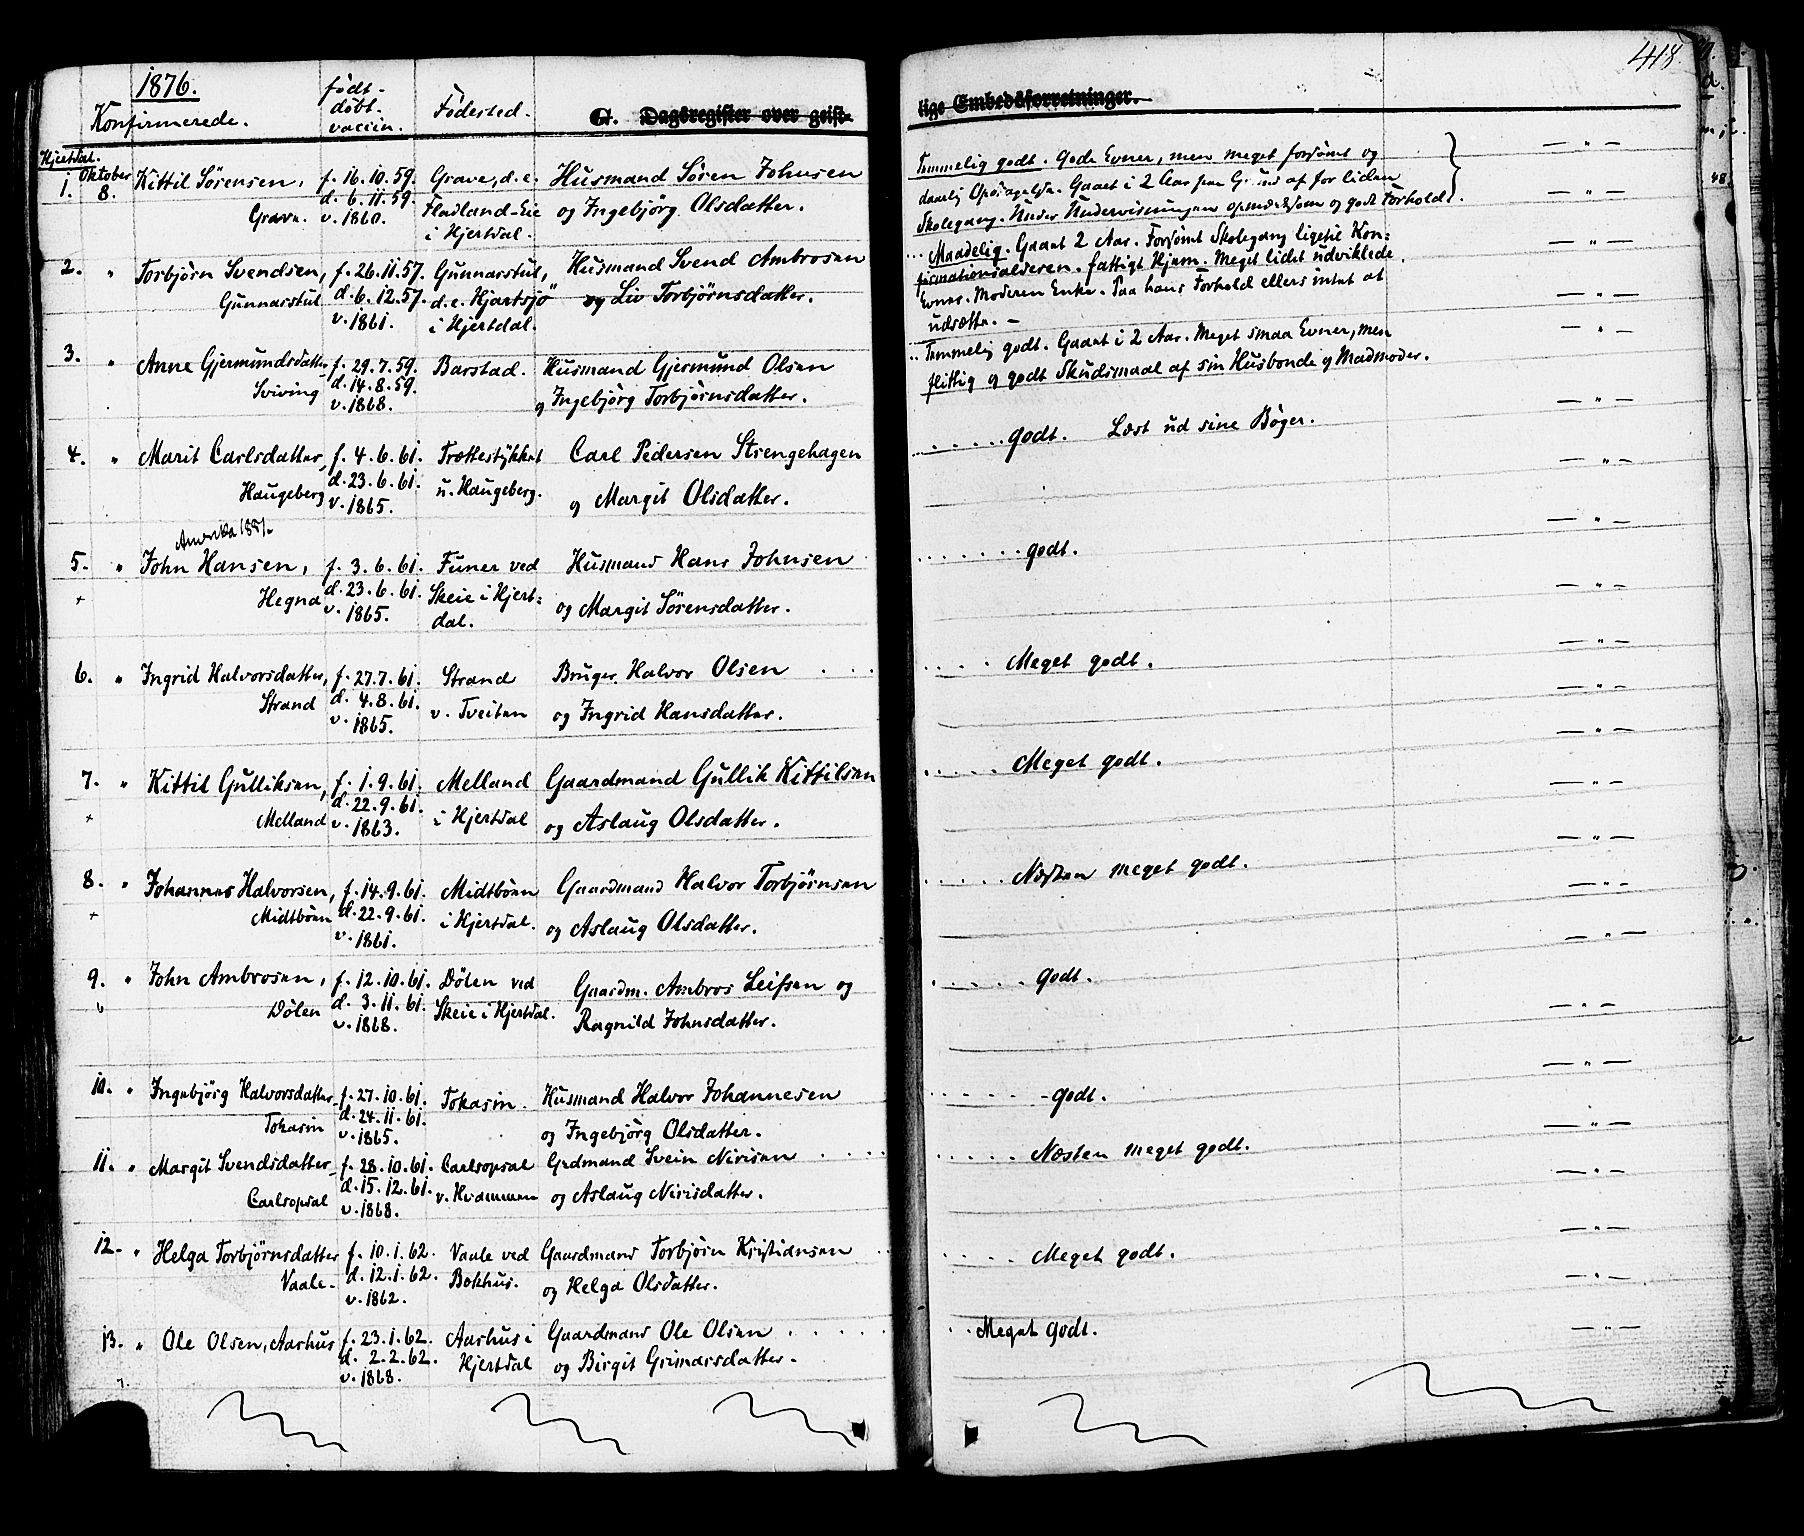 1876.
Konfirmerede.
født-
døbt-
vaccin.
Fødested.
G. Dagsregister over geist-
lige Embedsforretninger.
418.
Hjertdal.
1. Oktober 8. Kittil Sørensen, f. 16.10.59. Grave, d.e. Husmand Søren Johnsen
Grave. d. 6.11.59. Fladland-Eie og Ingebjörg Olsdatter.
v. 1860. i Hjertdal.
Temmelig godt. Gode Evner, men meget forsømt og
daarlig Opdragelse. Gaaet i 2 Aar paa Grund af for liden
Skolegang. Under Undervisningen opmærksom og godt Forhold.
— " —
2. " Torbjörn Svendsen, f. 26.11.57. Gunnarstul, Husmand Svend Ambrosen
Gunnarstul d. 6.12.57. d.e. Hjartsjö og Liv Torbjørnsdatter.
v. 1861. i Hjertdal.
Maadelig. Gaaet 2 Aar. Forsömt Skolegang ligetil Kon-
firmationsalderen. fattigt Hjem. Meget lidet udviklede
Evner. Moderen Enke. Paa hans Forhold ellers intet at
udsætte. —
3. " Anne Gjermundsdatter f. 29.7.59. Barstad. Husmand Gjermund Olsen
Sviving d. 14.8.59. og Ingebjörg Torbjørnsdatter.
v. 1868.
Temmelig godt. Gaaet i 2 Aar. Meget smaa Evner, men
flittig og godt Skudsmaal af sin Husbonde og Madmoder.
4. " Marit Carlsdatter, f. 4.6.61. Trættestykket Carl Pedersen Strengehagen
Haugeberg d. 23.6.61. u. Haugeberg. og Margit Olsdatter.
v. 1865.
godt. Læst ud sine Böger.
Amerika 1881.
5. " John Hansen, f. 3.6.61. Funer ved Husmand Hans Johnsen
+ Hegna d. 23.6.61. Skeie i Hjert- og Margit Sørensdatter.
v. 1865. dal.
godt.
6. " Ingrid Halvorsdatter, f. 27.7.61. Strand Bruger Halvor Olsen
Strand d. 4.8.61. v. Tveiten og Ingrid Hansdatter.
v. 1865.
Meget godt.
7. " Kittil Gulliksen, f. 1.9.61. Melland Gaardmand Gullik Kittilsen
+ Melland d. 22.9.61. i Hjertdal og Aslaug Olsdatter.
v. 1863.
Meget godt.
8. " Johannes Halvorsen, f. 14.9.61. Midtböen Gaardmand Halvor Torbjørnsen
+ Midtböen d. 22.9.61. i Hjertdal. og Aslaug Olsdatter.
v. 1861.
Næsten meget godt.
9. " John Ambrosen, f. 12.10.61. Dölen ved Gaardm. Ambros Leifsen og
Dölen d. 3.11.61. Skeie i Hjertdal. Ragnild Johnsdatter.
v. 1868.
godt.
10. " Ingebjörg Halvorsdatter f. 27.10.61. Tokasin. Husmand Halvor Johannesen
Tokasin d. 24.11.61. og Ingebjörg Olsdatter.
v. 1865.
godt.
11. " Margit Svendsdatter f. 28.10.61. Carlsopsal Grdmand Svein Nirisen
Carlsopsal d. 15.12.61. v. Hvammen og Aslaug Nirisdatter.
v. 1868.
Næsten meget godt.
12. " Helga Torbjørnsdatter f. 10.1.62. Vaale ved Gaardmand Torbjörn Kristiansen
Vaale. d. 12.1.62. Bokhus. og Helga Olsdatter.
v. 1862.
Meget godt.
13. " Ole Olsen, Aarhus f. 23.1.62. Aarhus i Gaardmand Ole Olsen
d. 2.2.62. Hjertdal og Birgit Grimarsdatter.
v. 1868.
Meget godt.